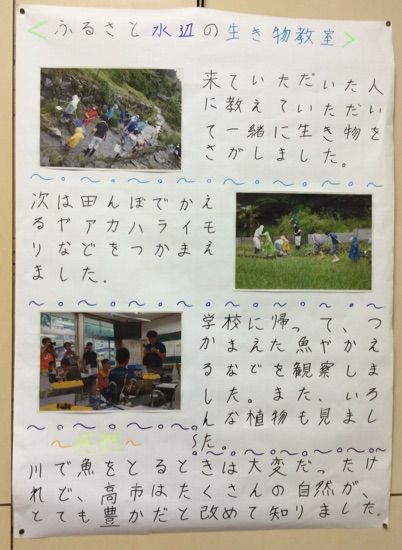 <ふるさと水辺の生き物教室>
来ていただいた人
に教えていただい
て一緒に生き物を
さがしました。
次は田んぼでかえ
るやアカハライモ
りなどをつかまえ
ました。
学校に帰って、つ
かまえた魚やかえ
るなどを観察しま
した。また、いろ
んな植物も見まし
た。
〜感想〜
川で魚をとるときは大変だったけ
れど、高市はたくさんの自然が、
とても豊かだと改めて知りました。